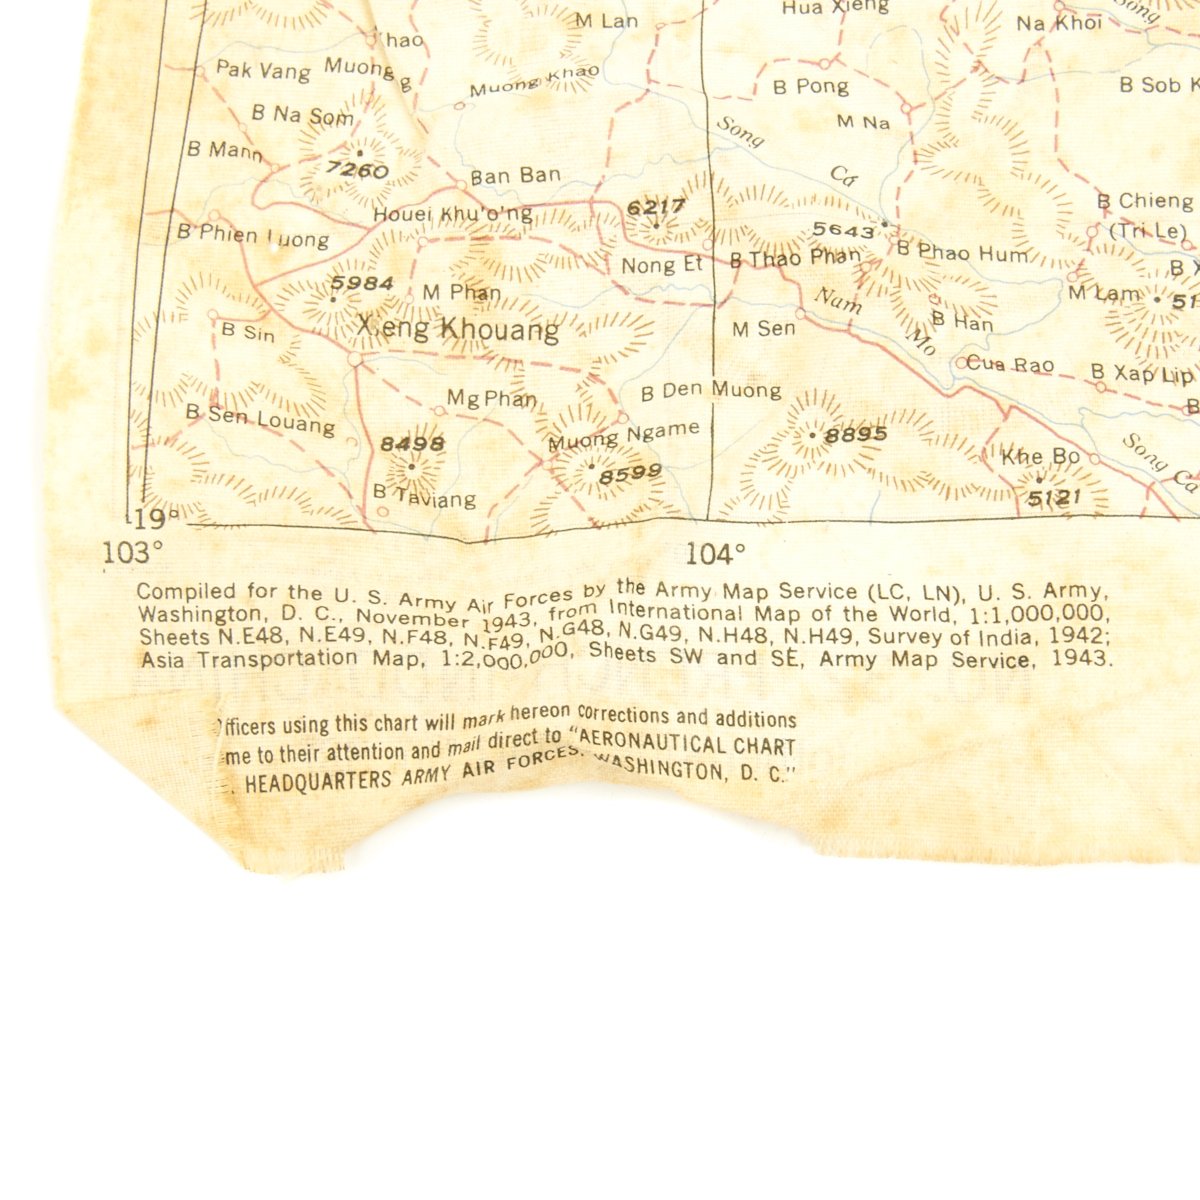 Hua Xieng
Song
M Lan
Na Khoi
Khao
Pak Vang
Muong
g
Muong Khao
B Pong
B Sob K
B Na Som
M Na
Song
B Mann
7260
Ban Ban
Cá
Houei Khu'o'ng
6217
B Chieng
(Tri Le)
5643
B Phien Luong
B Thao Phan
B Phao Hum
Nong Et
B X
5984
M Phan
Nam
M Lam
51
B Sin
Xieng Khouang
M Sen
B Han
Mo
Cua Rao
B Xap Lip
Mg Phan
B Den Muong
B
B Sen Louang
8498
Muong Ngame
8895
Song Ca
8599
Khe Bo
B Taviang
5121
19°
103°
104°
Compiled for the U. S. Army Air Forces by the Army Map Service (LC, LN), U. S. Army,
Washington, D. C., November 1943, from International Map of the World, 1:1,000,000,
Sheets N.E48, N.E49, N.F48, N.F49, N.G48, N.G49, N.H48, N.H49, Survey of India, 1942;
Asia Transportation Map, 1:2,000,000, Sheets SW and SE, Army Map Service, 1943.
fficers using this chart will mark hereon corrections and additions
me to their attention and mail direct to "AERONAUTICAL CHART
. HEADQUARTERS ARMY AIR FORCES, WASHINGTON, D. C."